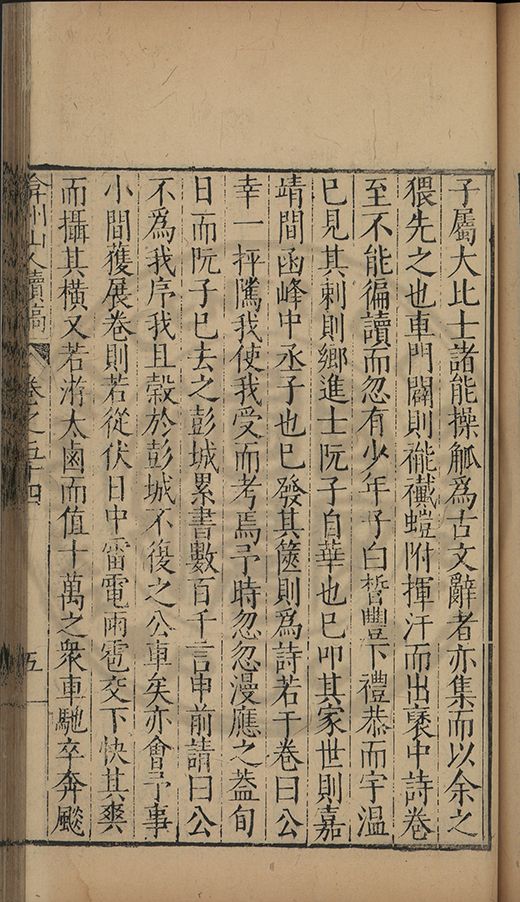 子屬大比士諸能操觚為古文辭者亦集而以余之
猥先之也車門闢則褦襶螘附揮汗而出褎中詩卷
至不能徧讀而忽有少年子白晳豐下禮恭而宇溫
已見其刺則鄉進士阮子自華也已叩其家世則嘉
靖間函峰中丞子也已發其篋則為詩若干卷曰公
幸一抨隲我使我受而考焉予時忽忽漫應之葢旬
日而阮子已去之彭城累書數百千言申前請曰公
不為我序我且穀於彭城不復之公車矣亦會予事
小間獲展卷則若從伏日中雷電雨雹交下快其爽
而攝其橫又若㳺太鹵而值十萬之衆車馳卒奔飈
弇州山人續稿 卷之五十四 五